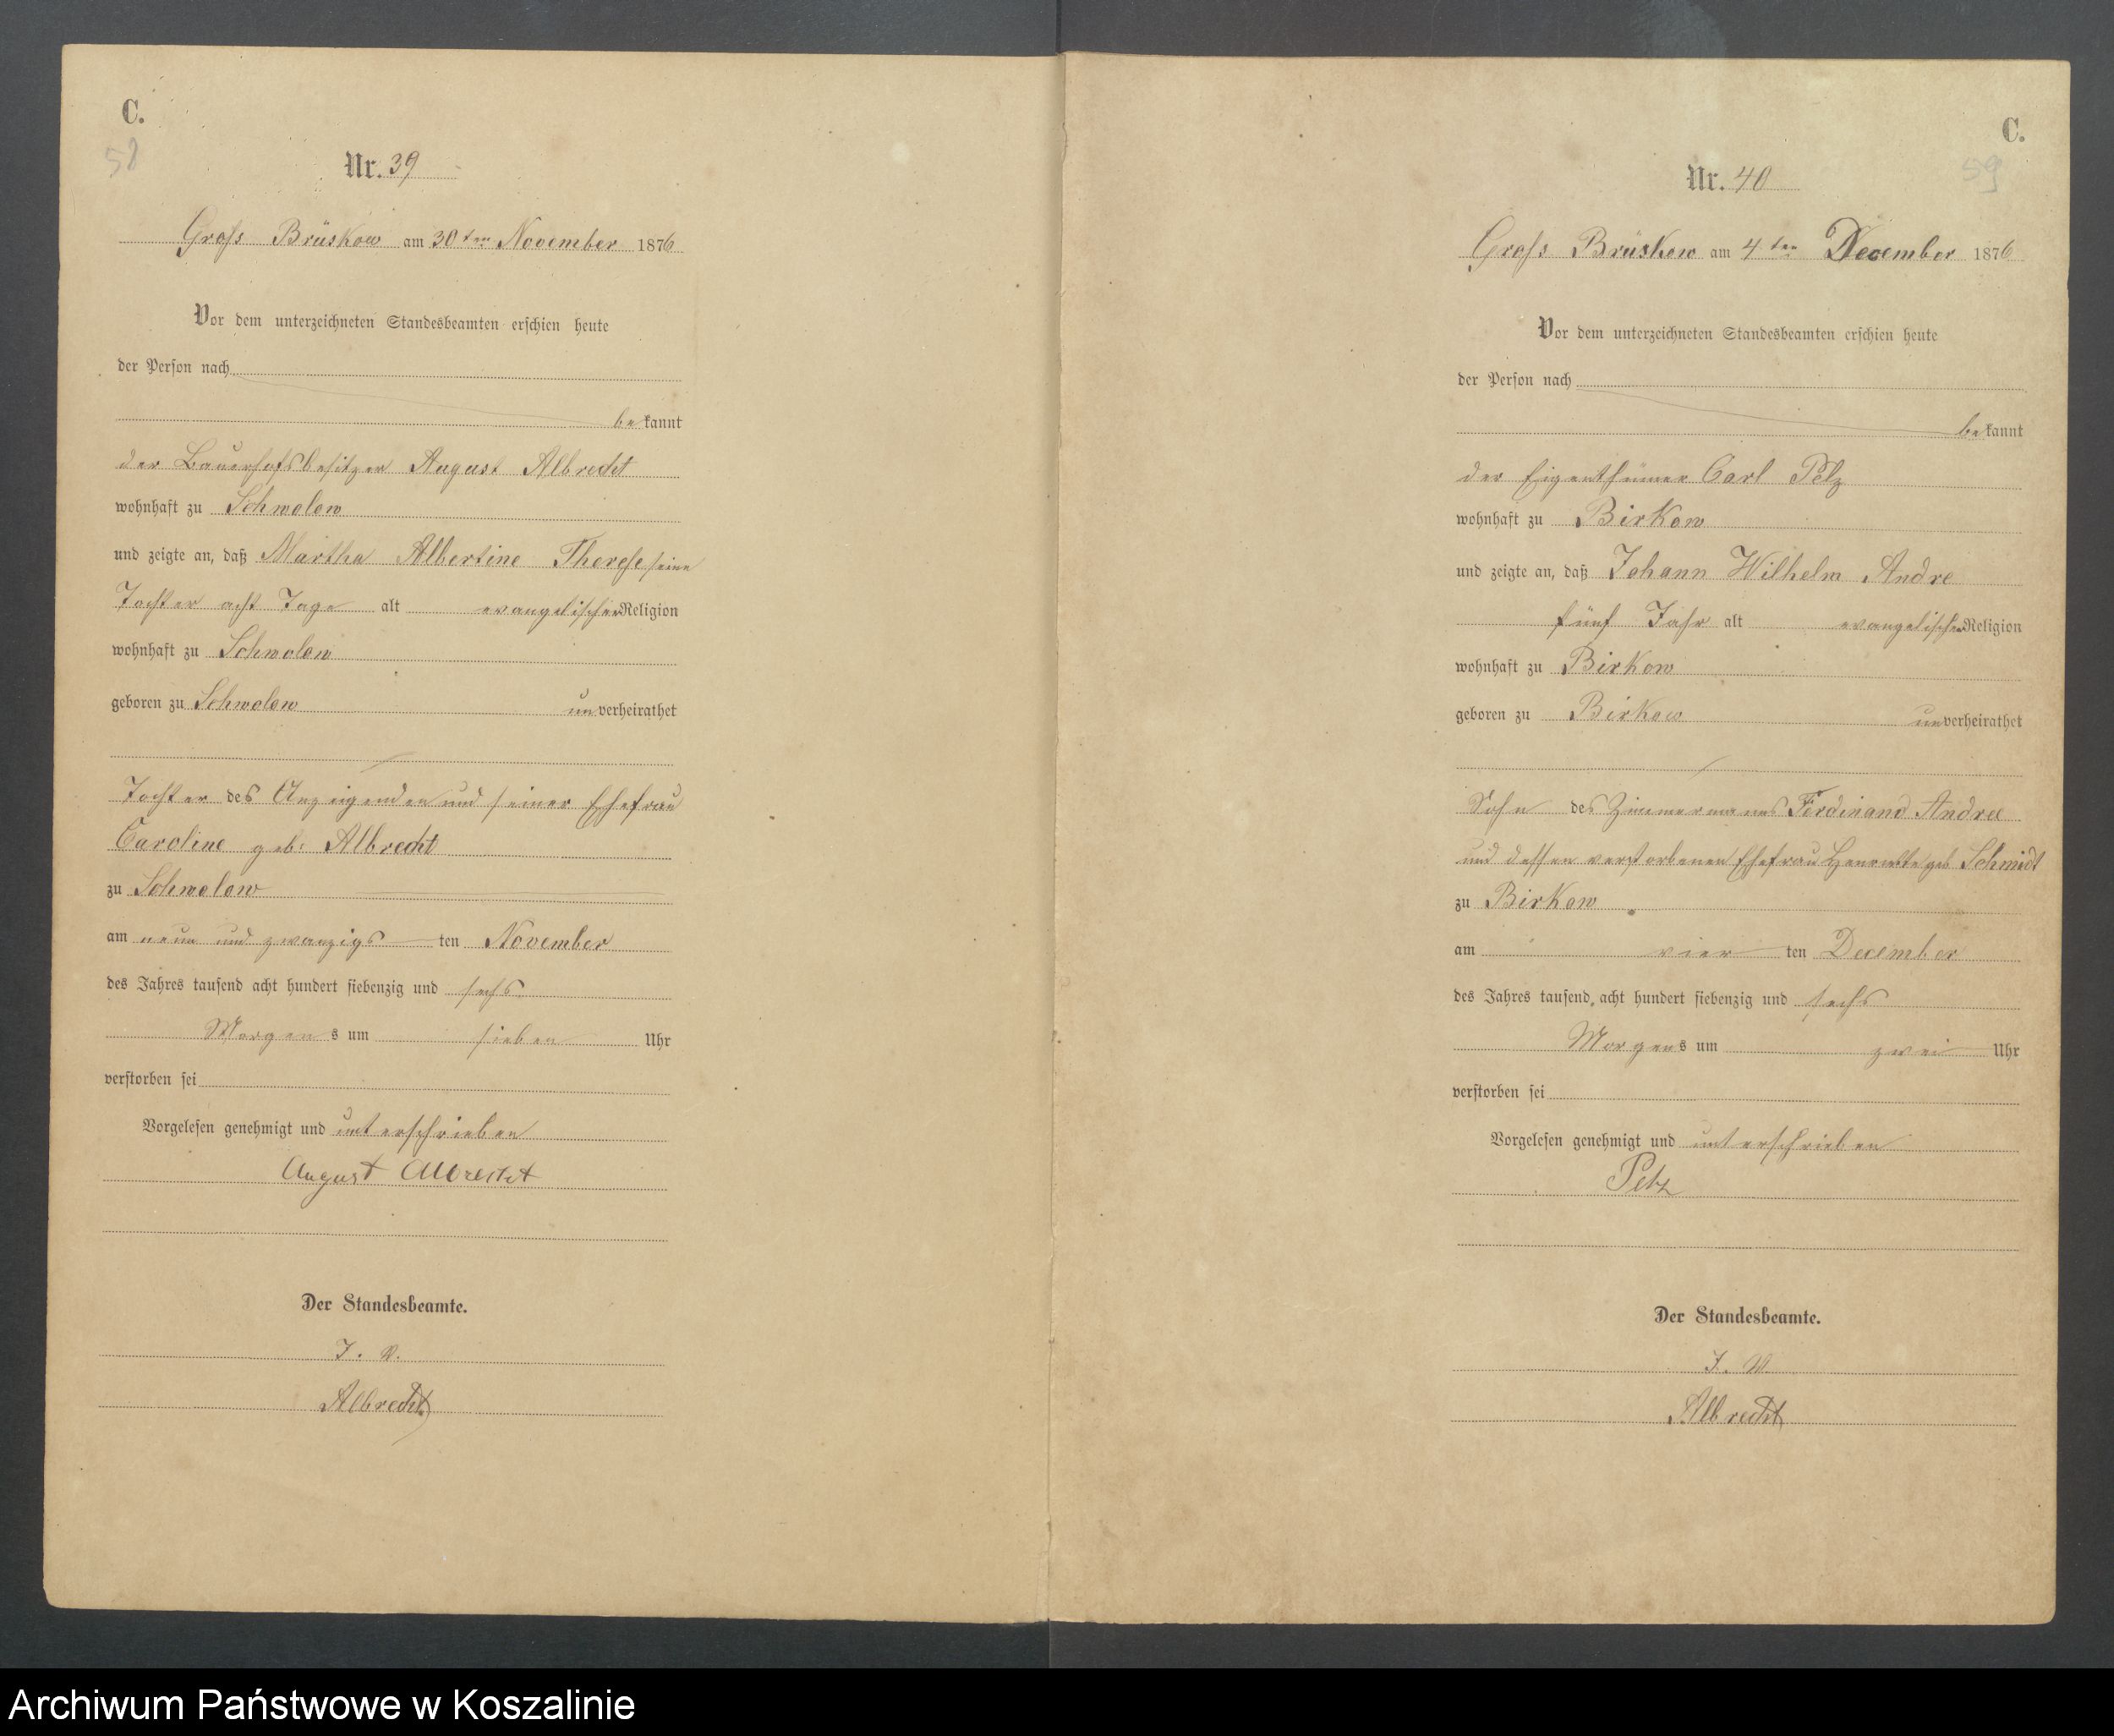 C.
58
Nr. 39
Groß Brüskow am 30ten November 1876
Vor dem unterzeichneten Standesbeamten erschien heute
der Person nach
bekannt
der Bauerhofsbesitzer August Albrecht
wohnhaft zu Schwolow
und zeigte an, daß Martha Albertine Therese seine
Tochter acht Tage alt evangelischer Religion
wohnhaft zu Schwolow
geboren zu Schwolow unverheirathet
Tochter des Anzeigenden und seiner Ehefrau
Caroline geb: Albrecht
zu Schwolow
am neun und zwanzigsten November
des Jahres tausend acht hundert siebenzig und sechs
Morgens um sieben Uhr
verstorben sei
Vorgelesen genehmigt und unterschrieben
August Albrecht
Der Standesbeamte.
J. V.
Albrecht
C.
59
Nr. 40
Groß Brüskow am 4ten December 1876
Vor dem unterzeichneten Standesbeamten erschien heute
der Person nach
bekannt
der Eigenthümer Carl Pelz
wohnhaft zu Birkow
und zeigte an, daß Johann Wilhelm Andre
fünf Jahr alt evangelischer Religion
wohnhaft zu Birkow
geboren zu Birkow unverheirathet
Sohn des Zimmermanns Ferdinand Andree
und dessen verstorbenen Ehefrau geb Schmidt
zu Birkow
am vierten December
des Jahres tausend acht hundert siebenzig und sechs
Morgens um zwei Uhr
verstorben sei
Vorgelesen genehmigt und unterschrieben
Pelz
Der Standesbeamte.
J. V.
Albrecht
Archiwum Państwowe w Koszalinie